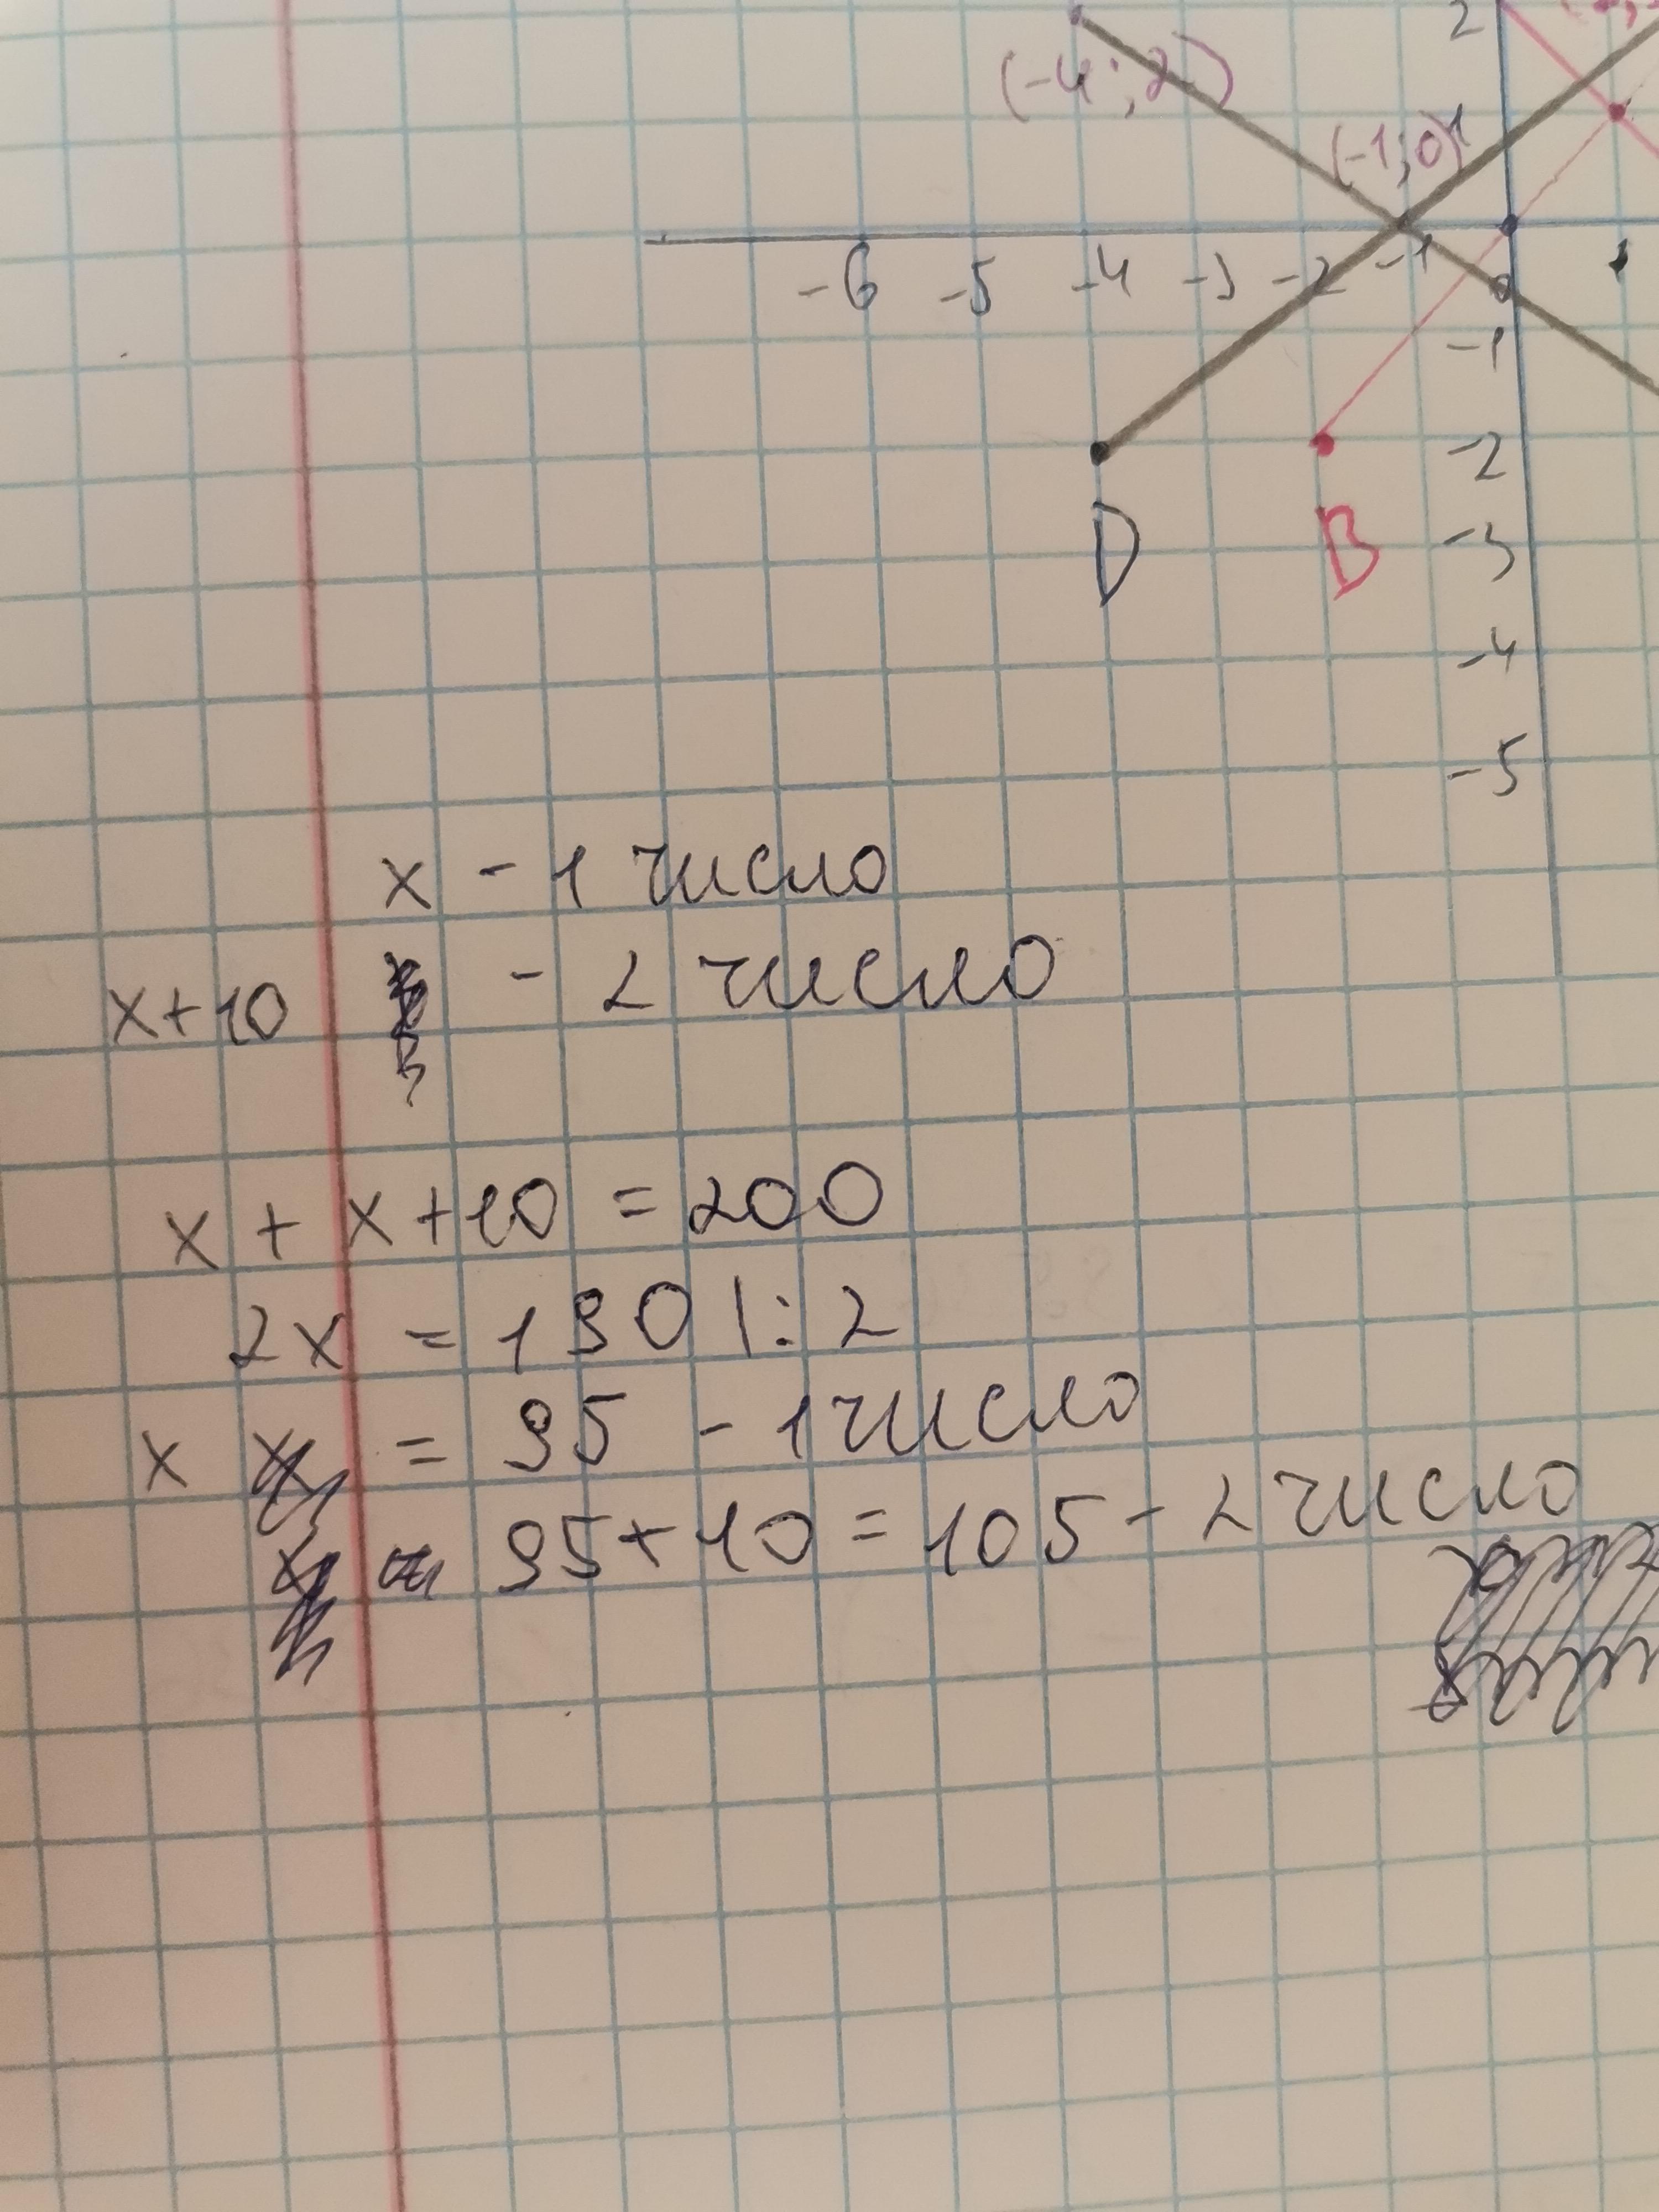 2
(-4;2)
(-1;0) 1
-6 -5 -4 -3 -2 -1 0
-1
-2
D B -3
-4
-5
x - 1 число
x+10 - 2 число
x + x+10 = 200
2x = 190 |: 2
x = 95 - 1 число
95+10 = 105 - 2 число